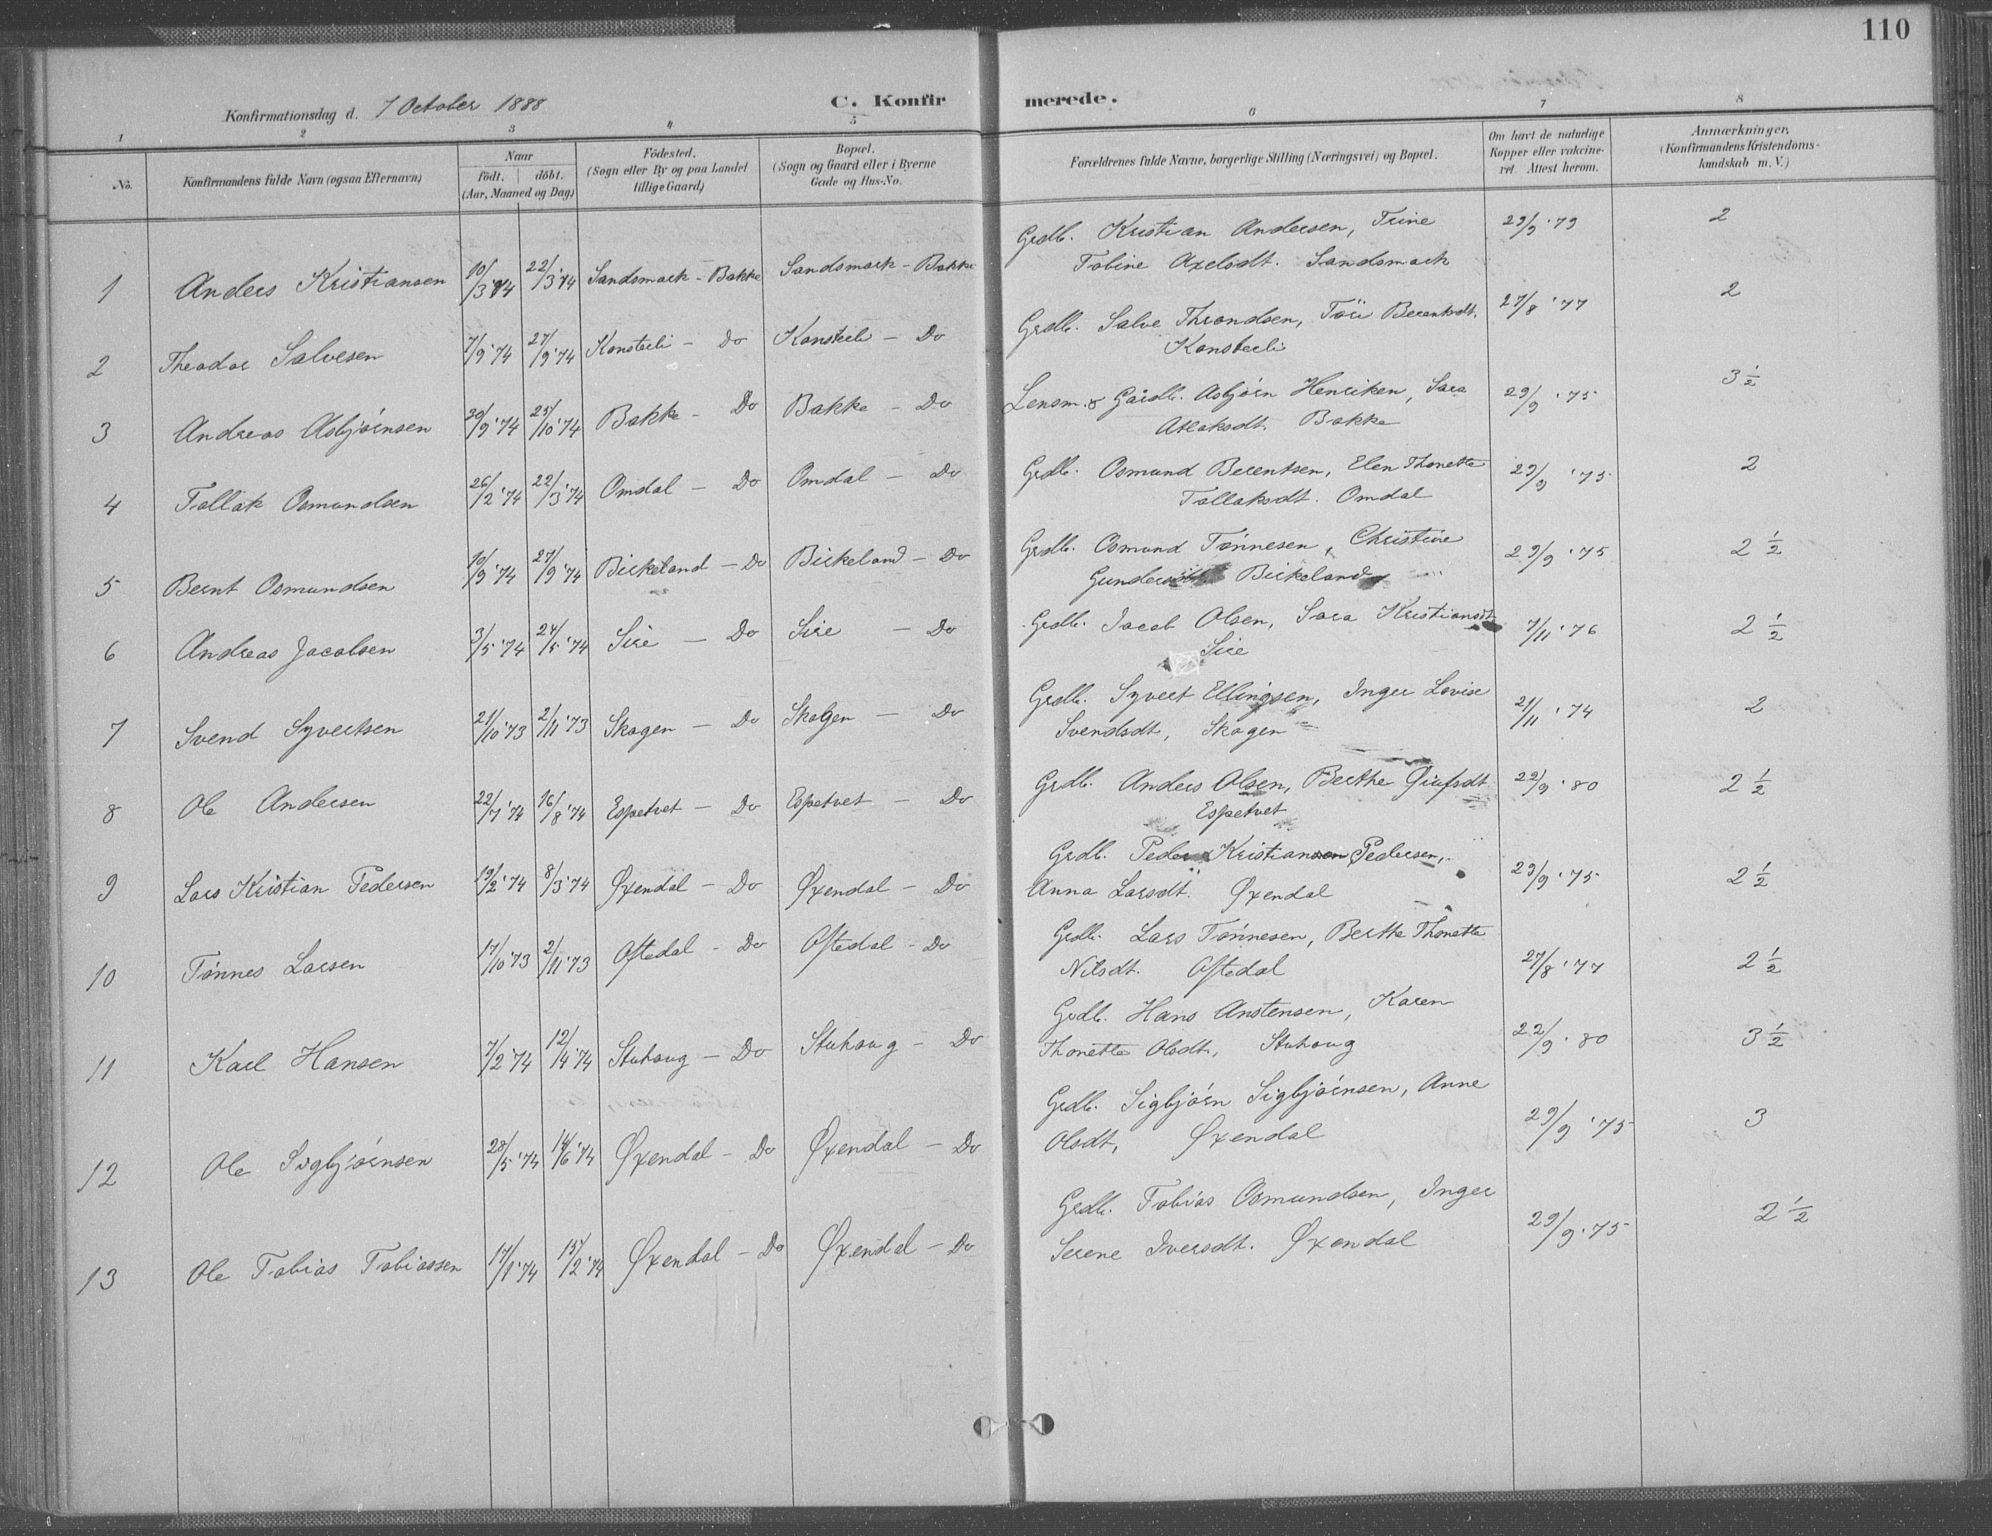 110
Konfirmationsdag d. 7 October 1888
C. Konfirmerede.
1 2 3 4 5 6 7 8
No. Konfirmandens fulde Navn (ogsaa Efternavn) Naar født. døbt. (Aar, Maaned og Dag) Födested. (Sogn eller By og paa Landet tillige Gaard) Bopæl. (Sogn og Gaard eller i Byerne Gade og Hus-No. Forældrenes fulde Navne, borgerlige Stilling (Næringsvei) og Bopæl. Om havt de naturlige Kopper eller vakcineret Attest herom. Anmærkninger, (Konfirmandens Kristendomskundskab m. V.)
1 Anders Kristiansen 10/3 '74 22/3 '74 Sandsmark - Bakke Sandsmark - Bakke Grdb. Kristian Andersen, Trine Tobine Axelsdt. Sandsmark 29/9 '79 2
2 Theodor Salvesen 7/9 '74 27/9 '74 Konsteli - Do Konsteli - Do Grdb. Salve Throndsen, Töri Berentsdt. Konsteeli 27/8 '77 2
3 Andreas Asbjørnsen 20/9 '74 25/10 '74 Bakke - Do Bakke - Do Lensm. & Gaardb. Asbjørn Henriken, Sara Atlaksdt. Bakke 29/9 '75 3 1/2
4 Tollak Osmundsen 26/2 '74 22/3 '74 Omdal - Do Omdal - Do Grdb. Osmund Berentsen, Elen Thonette Tollaksdt. Omdal 29/9 '75 2
5 Bernt Osmundsen 10/9 '74 27/9 '74 Birkeland - Do Birkeland - Do Grdb. Osmund Tønnesen, Christine Gundersdt. Birkeland 29/9 '75 2 1/2
6 Andreas Jacobsen 3/5 '74 24/5 '74 Sire - Do Sire - Do Grdb. Jacob Olsen, Sara Kristiansdt Sire 7/11 '76 2 1/2
7 Svend Syvertsen 21/10 '73 2/11 '73 Skogen - Do Skogen - Do Grdb. Syvert Ellingsen, Inger Lovise Svendsdt, Skogen 21/11 '74 2
8 Ole Andersen 22/7 '74 16/8 '74 Espetvet - Do Espetvet - Do Grdb. Anders Olsen, Berthe Espetvet 22/9 '80 2 1/2
9 Lars Kristian Pedersen 19/2 '74 8/3 '74 Øxendal - Do Øxendal - Do Grdb. Peder Kristiansen Pedersen, Anna Larsdt. Øxendal 29/9 '75 2 1/2
10 Tønnes Larsen 17/10 '73 2/11 '73 Oftedal - Do Oftedal - Do Grdb. Lars Tønnesen, Berthe Thonette Nilsdt. Oftedal 27/8 '77 2 1/2
11 Karl Hansen 7/2 '74 12/4 '74 Stuhaug - Do Stuhaug - Do Grdb. Hans Anstensen, Karen Thonette Olsdt, Stuhaug 22/9 '80 3 1/2
12 Ole Sigbjørnsen 28/5 '74 14/6 '74 Øxendal - Do Øxendal - Do Grdb. Sigbjørn Sigbjørnsen, Anne Olsdt, Øxendal 29/9 '75 3
13 Ole Tobias Tobiassen 17/1 '74 15/2 '74 Øxendal - Do Øxendal - Do Grdb. Tobias Osmundsen, Inger Serene Iversdt. Øxendal 29/9 '75 2 1/2